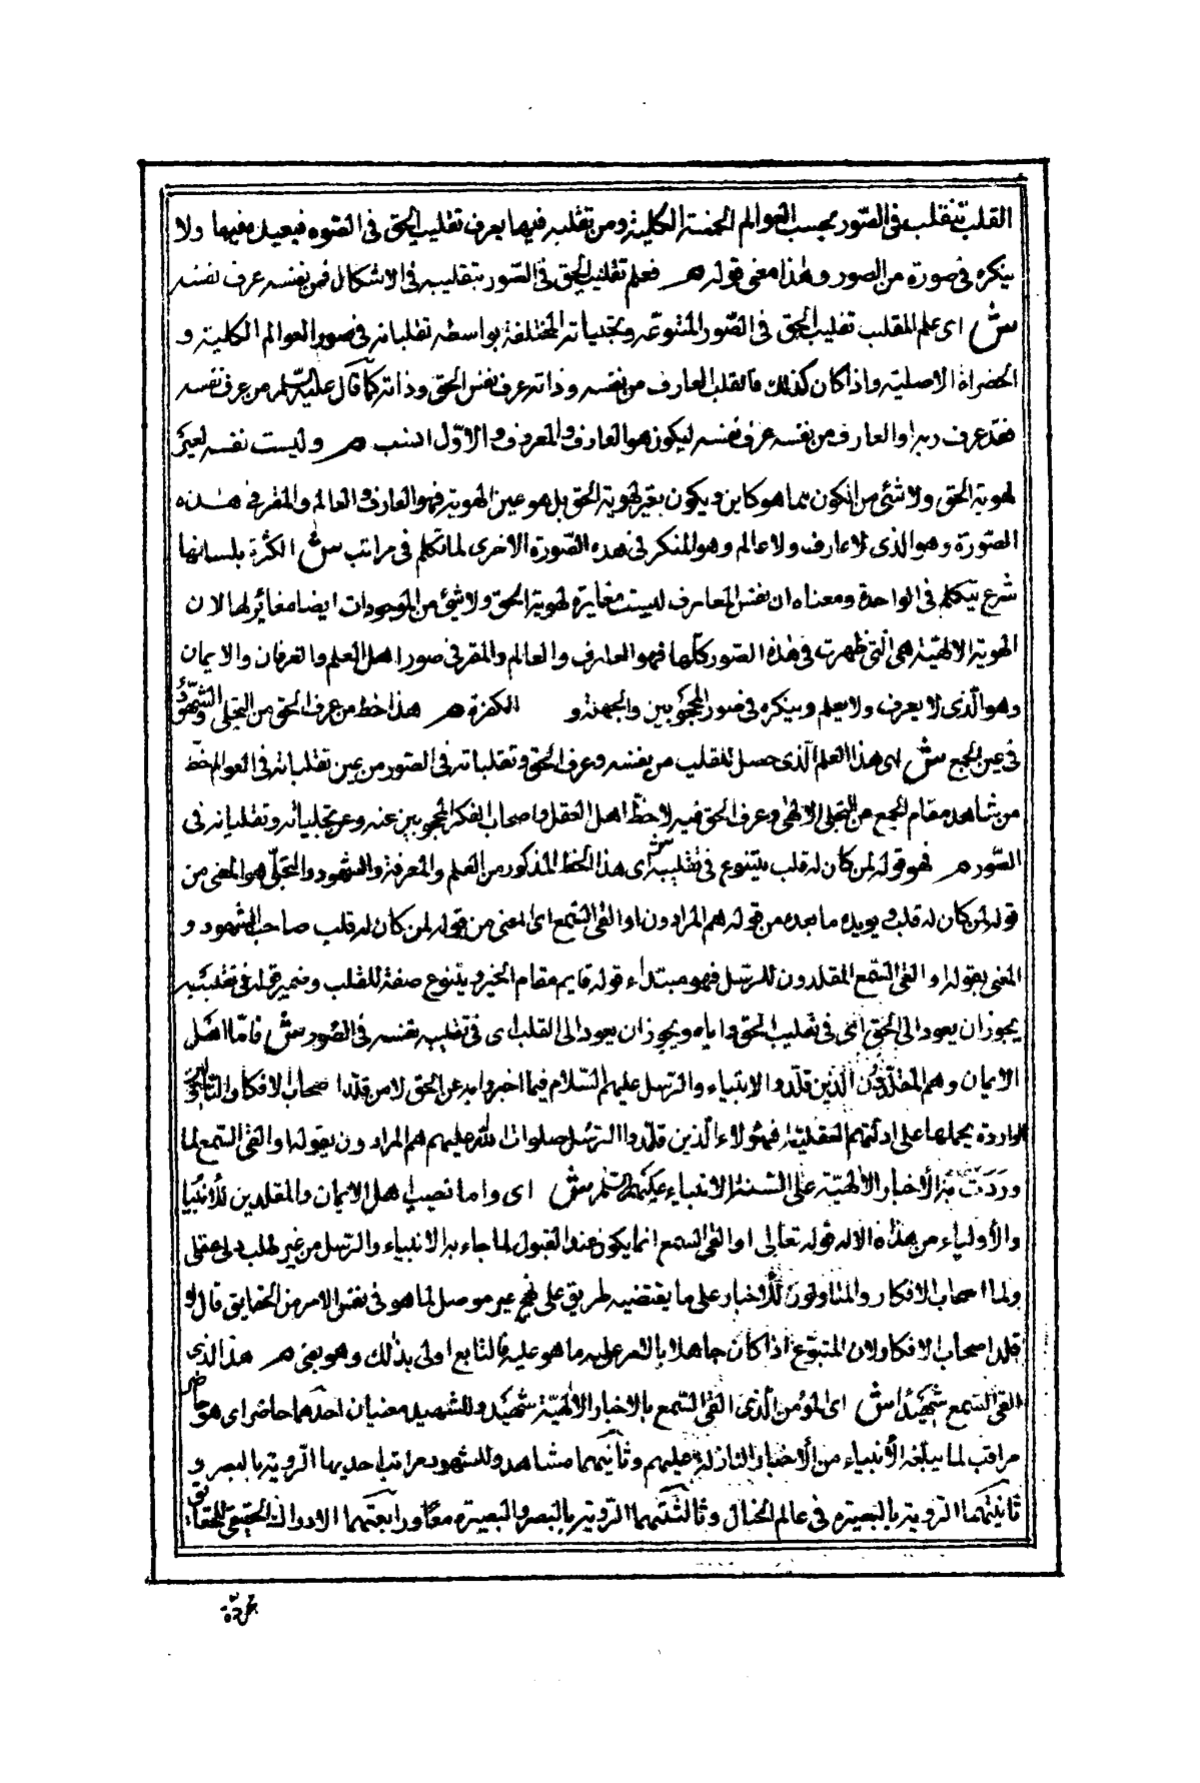 القلب تنقلب فى الصّور بحسب العوالم الخمسة الكلية ومن تقلبه فيها يعرف تقليب الحق فى الصّوره فيعبده فيها ولا
ينكره فى صورة من الصور وهذا معنى قوله هر فعلم تقليب الحق فى الصّور بتقليبه فى الاشكال فمن نفسه عرف نفسه
سش اى علم المقلب تقليب الحق فى الصّور المتنوعه وتجلياته المختلفة بواسطه تقلباته فى صور العوالم الكلية و
الحضراة الاصلية واذا كان كذلك فالقلب العارف من نفسه وذاته عرف نفس الحق وذاته كما قال عليه السلم من عرف نفسه
فقد عرف ربه او العارف من نفسه عرف نفسه ليكون هو العارف والمعروف والاوّل انسب هر وليست نفسه لغير
لهوية الحق ولا شئ من الكون مما هو كاين ويكون بغير لهوية الحق بل هو عين الهوية فهو العارف والعالم والمقر فى هذه
الصّورة وهو الذى لا عارف ولا عالم وهو المنكر فى هذه الصّورة الاخرى لما تكلم فى مراتب سش الكثرة بلسانها
شرع يتكلم فى الواحدة ومعناه ان نفس العارف ليست مغايرة لهوية الحق ولا شئ من الموجودات ايضا مغاير لها لان
الهوية الالهيّة هى الّتى ظهرت فى هذه الصّور كلّها فهو العارف والعالم والمقر فى صور اهل العلم والعرفان والايمان
وهو الّذى لا يعرف ولا يعلم وينكره فى صور المحجوبين والجهلة و الكفرة هر هذا حظ من عرف الحق من التجلى والشّهود
فى عين الجمع سش اى هذا العلم الّذى حصل للقلب من نفسه وعرف الحق وتقلباته فى الصّور من عين تقلباته فى العوالم حظّ
من شاهد مقام الجمع من التجلى الالهى وعرف الحق فيه لا حظّ اهل العقل واصحاب الفكر المحجوبين عنه وعن تجلياته وتقلباته فى
الصّور هر فهو قوله لمن كان له قلب يتنوع فى تقليبه سش اى هذا الحظ المذكور من العلم والمعرفة والشهود والتجلّى هو المعنى من
قوله لمن كان له قلب ويويده ما بعده من قوله هم المرادون او القى السّمع اى المعنى من قوله لمن كان له قلب صاحب الشهود و
المعنى بقوله او القى السّمع المقلدون للرسل فهو مبتداء قوله قايم مقام الخبر ويتنوع صفة للقلب وضمير قوله فى تقليبه
يجوز ان يعود الى الحق اى فى تقليب الحق اياه ويجوز ان يعود الى القلب اى فى تقليبه نفسه فى الصّور سش فامّا اهل
الايمان وهم المقلّدون الّذين قلّدوا الانبياء والرسل عليهم السّلام فيما اخبروا به عن الحق لا من قلّد اصحاب الافكار والتاويل
واردة بحملها على ادلّتهم العقليّة فهؤلاء الّذين قلّدوا الرّسل صلوات الله عليهم هم المرادون بقوله او القى السّمع لما
وردت به الأخبار الالهيّة على السنة الانبياء عليهم السلم سش اى واما نصيب اهل الايمان والمقلدين للانبيا
والأولياء من هذه الاله قوله تعالى او القى السمع انما يكون عند القبول لما جاء به الانبياء والرسل من غير طلب دليل عقلى
ولما اصحاب الافكار والمتاولون للاخبار على ما يقتضيه طريق على نهج غير موصل لما هو فى نفس الامر من الحقايق قال لا
قلد اصحاب الافكار لان المتبوّع اذا كان جاهلا بالامر على ما هو عليه فالتابع اولى بذلك وهو يعنى هر هذا الّذى
القى السّمع شهيد سش اى المؤمن الّذى القى السّمع بالاخبار الالهيّة شهيد وللشهيد معنيان احدهما حاضر اى هو حاضر
مراقب لما يبلغه الأنبياء من الأخبار النازلة عليهم وثانيهما مشاهد وللشهود مراتب احديها الرّوية بالبصر و
ثانيتهما الرّوية بالبصيرة فى عالم الخيال وثالثتهما الرّوية بالبصر والبصيرة معًا ورابعتهما الادراك الحقيقى للحقايق
مجرّدة